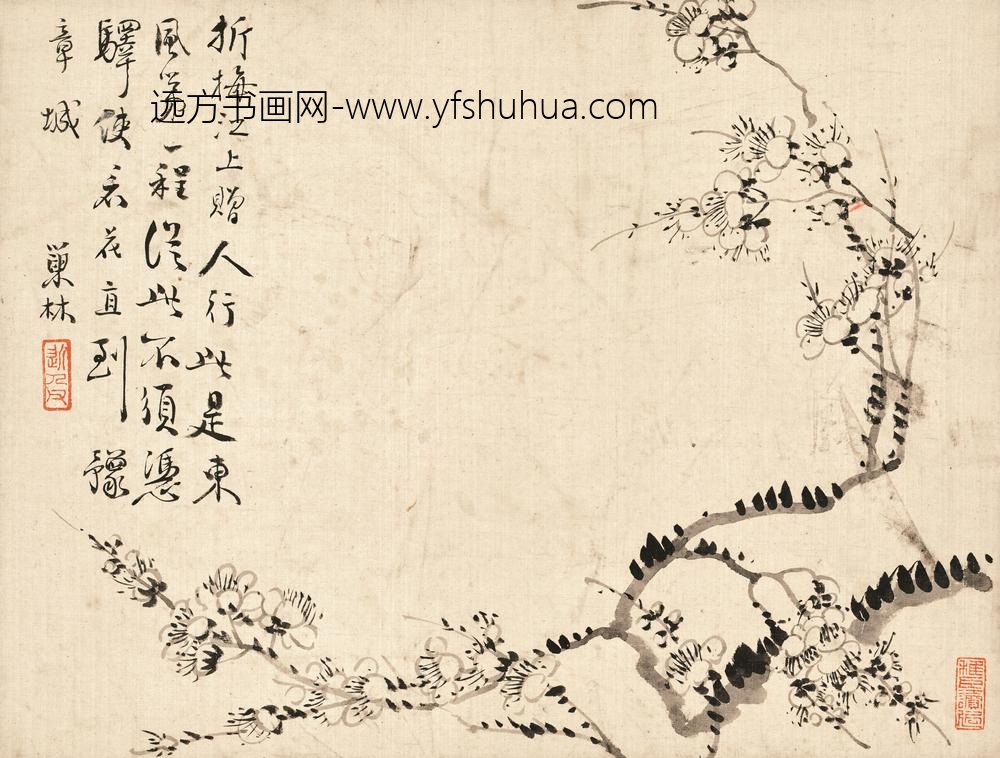 折梅江上贈人行此是東
風第一程從此不須憑
驛使看花直到豫
章城
巢林
远方书画网-www.yfshuhua.com